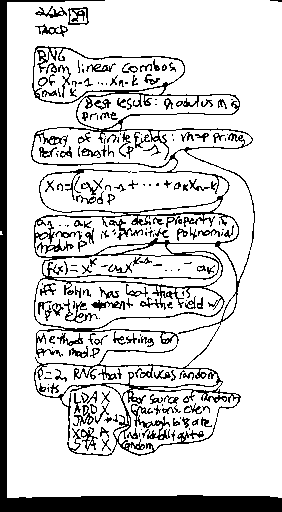 TAOCP
RNG
From linear combos
of Xn-1 ... Xn-k for
small k
Best results: modulus m is
prime
Theory of finite fields: m=p prime,
Period length p^k-1
Xn=(a1Xn-1+...+akXn-k)
mod P
a1...ak have desire property iff
polynomial is primitive polynomial
modulo P
f(x)=x^k-a1x^k-1-...-ak
iff Polyn. has root that is
primitive element of the field w/
p^k elem.
Methods for testing for
prim. mod P
P=2, RNG that produces random
bits
LDA X
ADD X
JNOV *+2
XOR A
STA X
Poor source of random
fractions, even
though bits are
individually quite
random